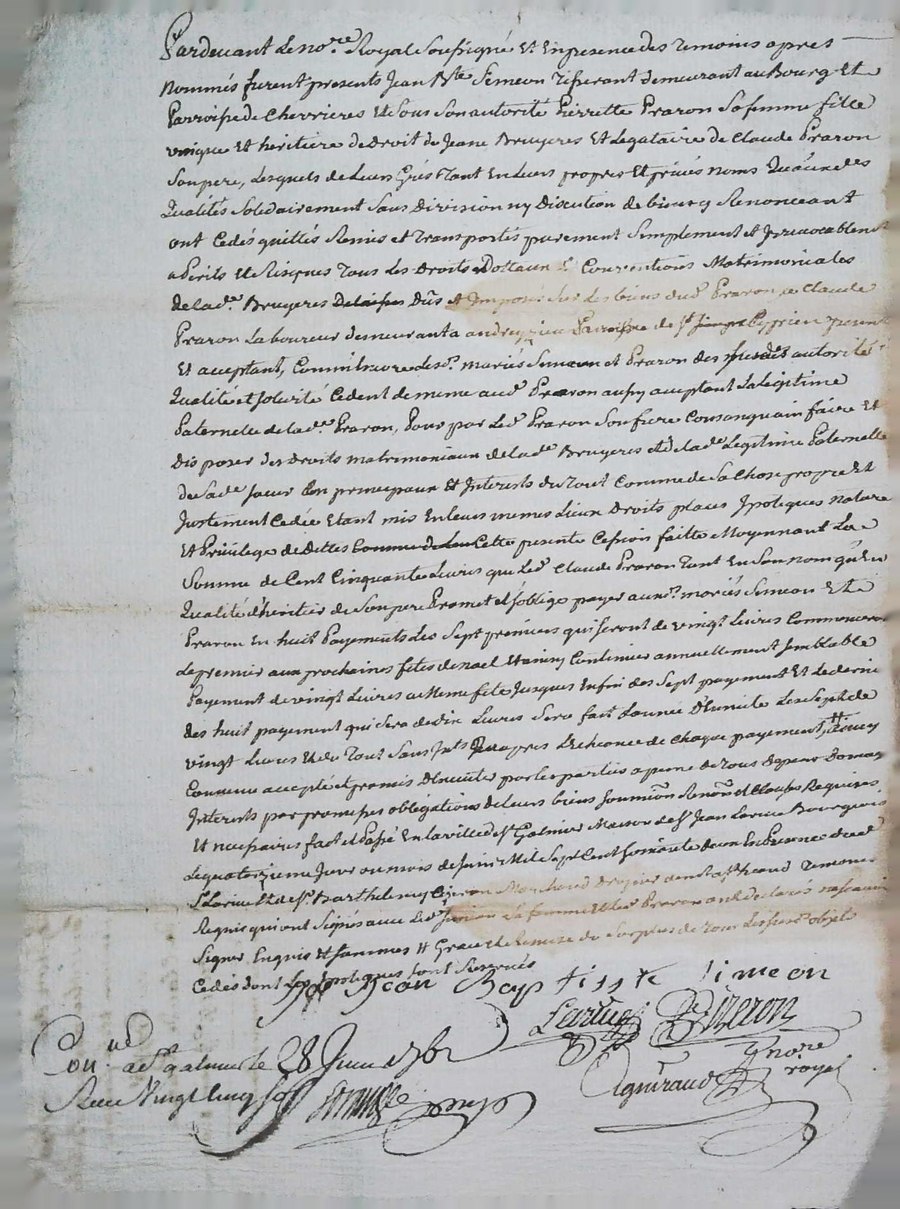 Pardevant Le no.re Royal Soussigné Et Enpresence des temoins apres
Nommés furent presents Jean B.te Simeon tisserant demeurant au Bourg Et
Parroisse de Chevrieres Et Sous Son autorité Pierrette Praron Sa femme fille
unique Et heritiere de Droit de Jeane Bruyeres Et Legataire de Claude Praron
Son pere, Lesquels de Leurs Grés tant En Leurs propres Et privés Noms Qu'aux des
Qualités Solidairement Sans Division ny Discution de biens y Renonceant
ont Cedés quittés Remis et transportés purement Simplement et Jrrevocablement
a Perils Et Risques tous Les Droits Dottaux Et Conventions Matrimoniales
de lad.e Bruyeres Dûs et Imposés Sur Les biens dud. Praron a Claude
Praron Laboureur demeurant a andrezieu Parroisse de S.t Cyprien present
Et aceptant, Comm'Encore Les S.rs mariés Simeon et Praron des susdits autorité
Qualité et Solidité Cedent de meme aud. Praron aussy aceptant La Legitime
Paternelle de lad.e Praron, Pour par Led. Praron Son frere Consanguain faire Et
Disposer des Droits matrimoniaux de lad.e Bruyeres et de lad.e Legitime Paternelle
de Sad.e Soeur En principaux Et Interests du tout Comme de Sa Chose propre Et
Justement Cedée Etant mis En leurs memes Lieux Droits places Ipoteques Nature
Et Privilege de Dettes Cette presente Cession faitte Moyennant La
Somme de Cent Cinquante Livres que Led. Claude Praron tant En Son nom qu'En
Qualité d'heritier de Son pere Promet et S'oblige payer auxd. mariés Simeon Et
Praron En huit Payements Les Sept premiers qui Seront de vingt Livres Commencera
Le premier aux prochaines fetes de noel Et ainsy Continuer annuellement Semblable
Payement de vingt Livres a meme fete Jusques Enfin des Sept payement Et Le dernier
des huit payement qui Sera de dix Livres Sera fait L'année D'Ensuite Les Sept de
vingt Livres Et du tout Sans Jnts Qu'apres L'Echeance de Chaque payement, # ainsy
Convenu accepté et promis D'Executer par les parties a peine de tous depens Domages
Interests par promesses obligations de leurs biens Soumi.ons Renon.ons et Clauses Requises
Et necessaires fait et Passé En la ville de S.t Galmier Maison de S.r Jean Larue Bourgeois
Le quatorzieme Jour du mois de Juin Mil Sept Cent Soixante deux En Presence dud.
S.r Larue Et de S.r Barthelemy Marchand Drapier temoins
Requis qui ont Signés avec Led. Simeon La femme Et Led. Praron ont declarés ne Scavoir
Signer Enquis et Sommés # Grace Et Remise du Surplus de tous Les Susd. objets
Cedés dont Les Ipoteques Sont Reservés
Jean Baptisste Simeon
Larue
no.re royal
Con.lé a S.t galmier le 28 Juin 1762
Reçu Vingt